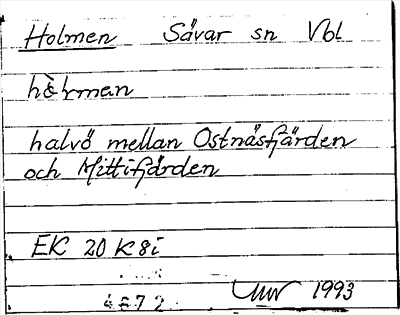 Holmen Sävar sn Vbl
hòlmen
halvö mellan Ostnäsfjärden
och Mittifjärden
EK 20 K 8i
1993
4672